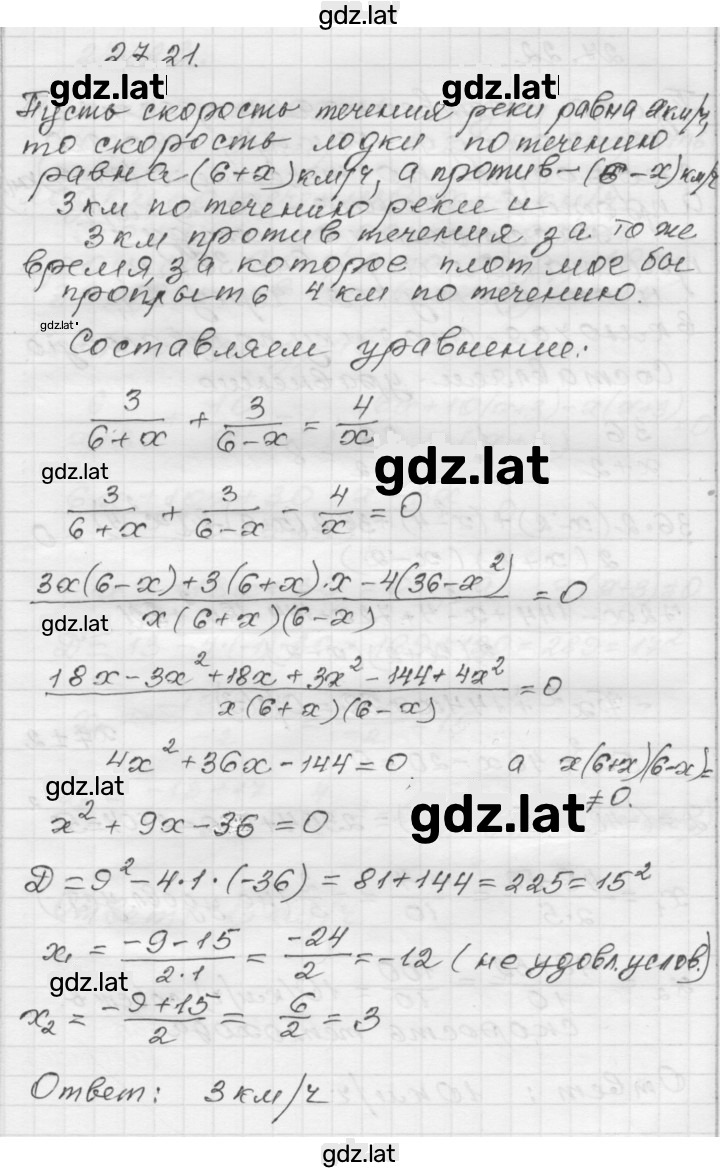 gdz.lat
27.21.
gdz.lat gdz.lat
Пусть скорость течения реки равна x км/ч,
то скорость лодки по течению
равна (6+x) км/ч, а против – (6-x) км/ч
3 км по течению реки и
3 км против течения за то же
время, за которое плот мог бы
проплыть 4 км по течению.
gdz.lat
Составляем уравнение:
3/(6+x) + 3/(6-x) = 4/x
gdz.lat
gdz.lat
3/(6+x) + 3/(6-x) - 4/x = 0
(3x(6-x)+3(6+x)·x-4(36-x²))/(x(6+x)(6-x)) = 0
gdz.lat
(18x-3x²+18x+3x²-144+4x²)/(x(6+x)(6-x)) = 0
4x²+36x-144=0 а x(6+x)(6-x)=
≠0.
gdz.lat
gdz.lat
x²+9x-36=0
D=9²-4·1·(-36)=81+144=225=15²
x₁ = (-9-15)/(2·1) = -24/2 = -12 (не удовл. услов.)
gdz.lat
x₂ = (-9+15)/2 = 6/2 = 3
Ответ: 3 км/ч
gdz.lat